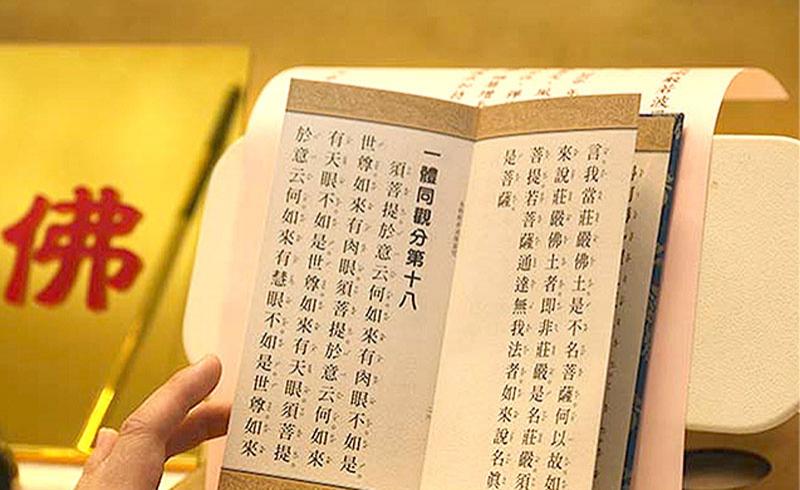 言我當莊嚴佛土是不名菩薩何以故如
來說莊嚴佛土者即非莊嚴是名莊嚴須
菩提若菩薩通達無我法者如來說名眞
是菩薩。
一體同觀分第十八
須菩提於意云何如來有肉眼不如是
世尊如來有肉眼須菩提於意云何如來
有天眼不如是世尊如來有天眼須菩提
於意云何如來有慧眼不如是世尊如來
若波
佛